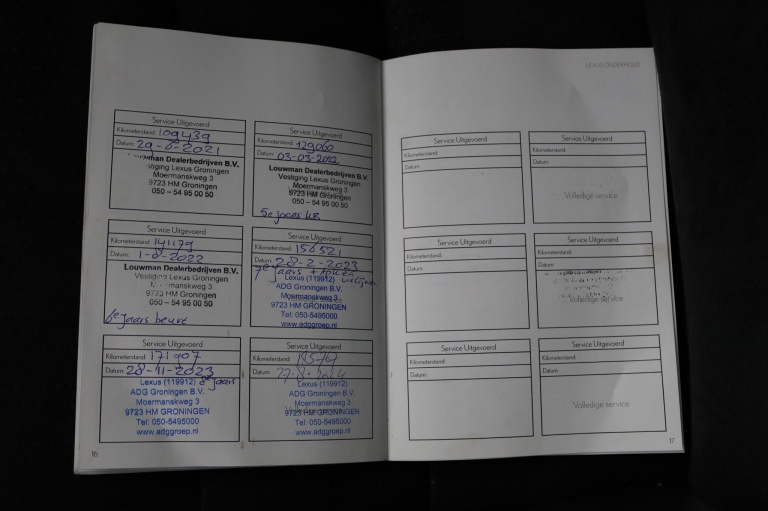 LEXUS ONDERHOUD
Service Uitgevoerd
Kilometerstand: 109439
Datum: 29-6-2021
Louwman Dealerbedrijven B.V.
Vestiging Lexus Groningen
Moermanskweg 3
9723 HM Groningen
050 – 54 95 00 50
Service Uitgevoerd
Kilometerstand: 129060
Datum: 03-03-2022
Louwman Dealerbedrijven B.V.
Vestiging Lexus Groningen
Moermanskweg 3
9723 HM Groningen
050 – 54 95 00 50
5e jaars
Service Uitgevoerd
Kilometerstand: 141179
Datum: 1-8-2022
Louwman Dealerbedrijven B.V.
Vestiging Lexus Groningen
Moermanskweg 3
9723 HM Groningen
050 – 54 95 00 50
6e jaars beurt
Service Uitgevoerd
Kilometerstand: 156521
Datum: 28-2-2023
7e jaars +
Lexus (119912)
ADG Groningen B.V.
Moermanskweg 3
9723 HM GRONINGEN
Tel: 050-5495000
www.adggroep.nl
Service Uitgevoerd
Kilometerstand: 171907
Datum: 28-11-2023
Lexus (119912) 8e jaars
ADG Groningen B.V.
Moermanskweg 3
9723 HM GRONINGEN
Tel: 050-5495000
www.adggroep.nl
Service Uitgevoerd
Kilometerstand:
Datum: 27-8-2024
Lexus (119912)
ADG Groningen B.V.
Moermanskweg 3
9723 HM GRONINGEN
Tel: 050-5495000
www.adggroep.nl
16
Service Uitgevoerd
Kilometerstand:
Datum:
Service Uitgevoerd
Kilometerstand:
Datum:
Volledige service
Service Uitgevoerd
Kilometerstand:
Datum:
Service Uitgevoerd
Kilometerstand:
Datum:
Volledige service
Service Uitgevoerd
Kilometerstand:
Datum:
Service Uitgevoerd
Kilometerstand:
Datum:
Volledige service
17